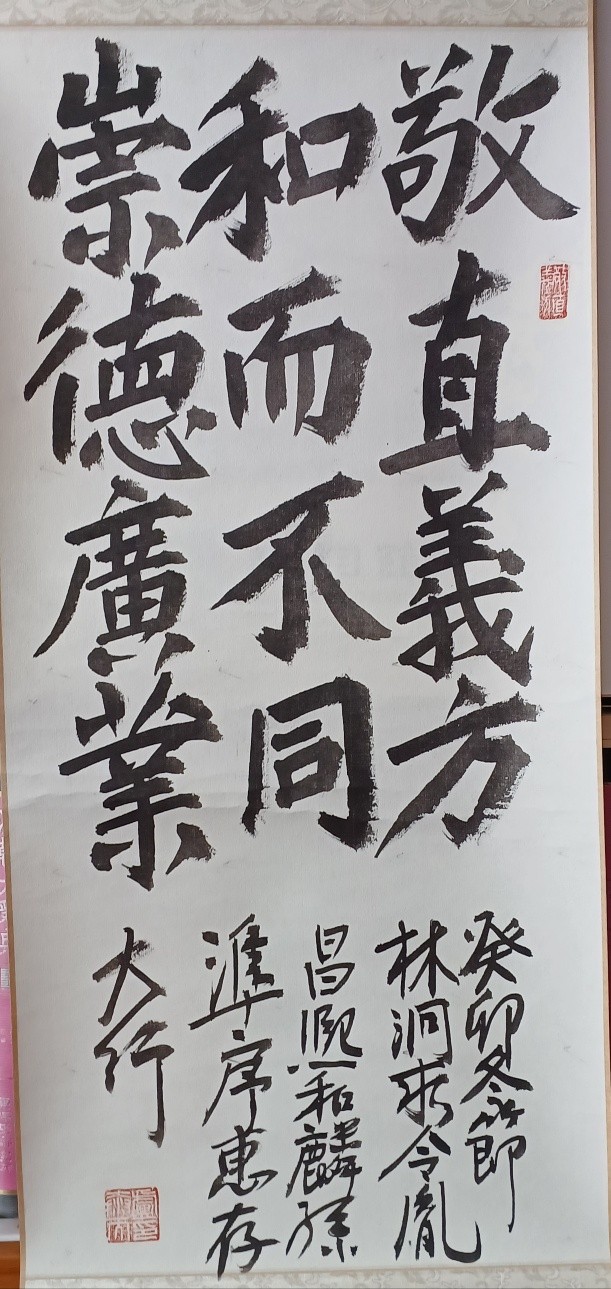 敬直義方
和而不同
崇德廣業
癸卯冬節
林泂求令胤
昌熙和麟孫
準序惠存
大行